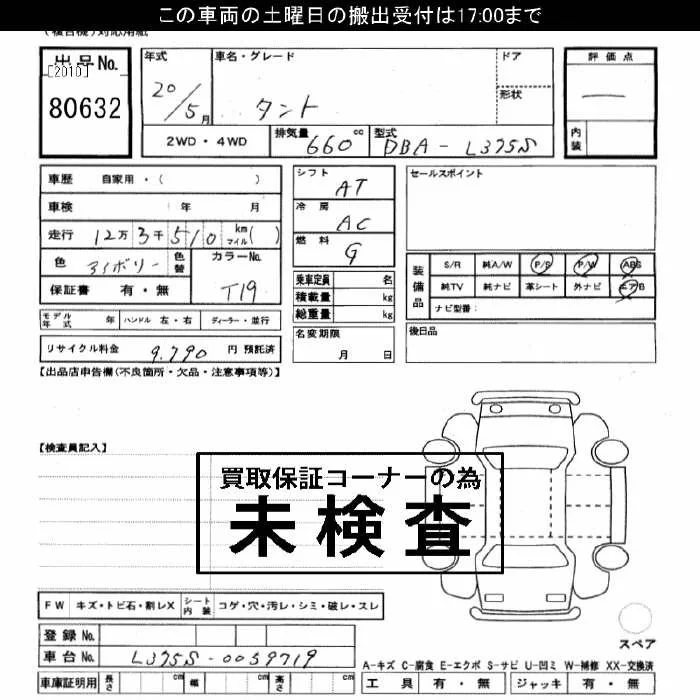 この車両の土曜日の搬出受付は17:00まで
出品No.
[2010]
80632
年式
20/5月
車名・グレード
タント
ドア
形状
評価点
内装
2WD・4WD
排気量 660 cc
型式 DBA-L375S
車歴 自家用・( )
車検 年 月
走行 12万3千510 kmマイル( )
色 アイボリー 色替
カラーNo. T19
保証書 有・無
シフト AT
冷房 AC
燃料 G
乗車定員 名
積載量 kg
総重量 kg
名変期限 月 日
セールスポイント
装備品
S/R 純A/W P/S P/W ABS
純TV 純ナビ 革シート 外ナビ エアB
ナビ型番:
後日品
モデル年式 年 ハンドル 左・右 ディーラー・並行
リサイクル料金 9,790 円 預託済
【出品店申告欄(不良箇所・欠品・注意事項等)】
【検査員記入】
買取保証コーナーの為
未検査
FW キズ・トビ石・割レX シート内装 コゲ・穴・汚レ・シミ・破レ・スレ
登録No.
車台No. L375S-0059719
車庫証明用 長さ cm 幅 cm 高さ cm
スペア
A-キズ C-腐食 E-エクボ S-サビ U-凹ミ W-補修 XX-交換済
工具 有・無 ジャッキ 有・無